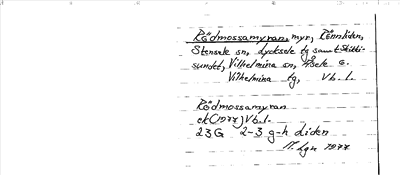 Rödmossamyran, myr, Rönnliden,
Stensele sn, Lycksele tg samt Skitti-
sundet, Vilhelmina sn, Åsele
Vilhelmina tg, Vb. l.
Rödmossamyran
ek (1977) Vb. l.
23G 2-3 g-h liden
1977